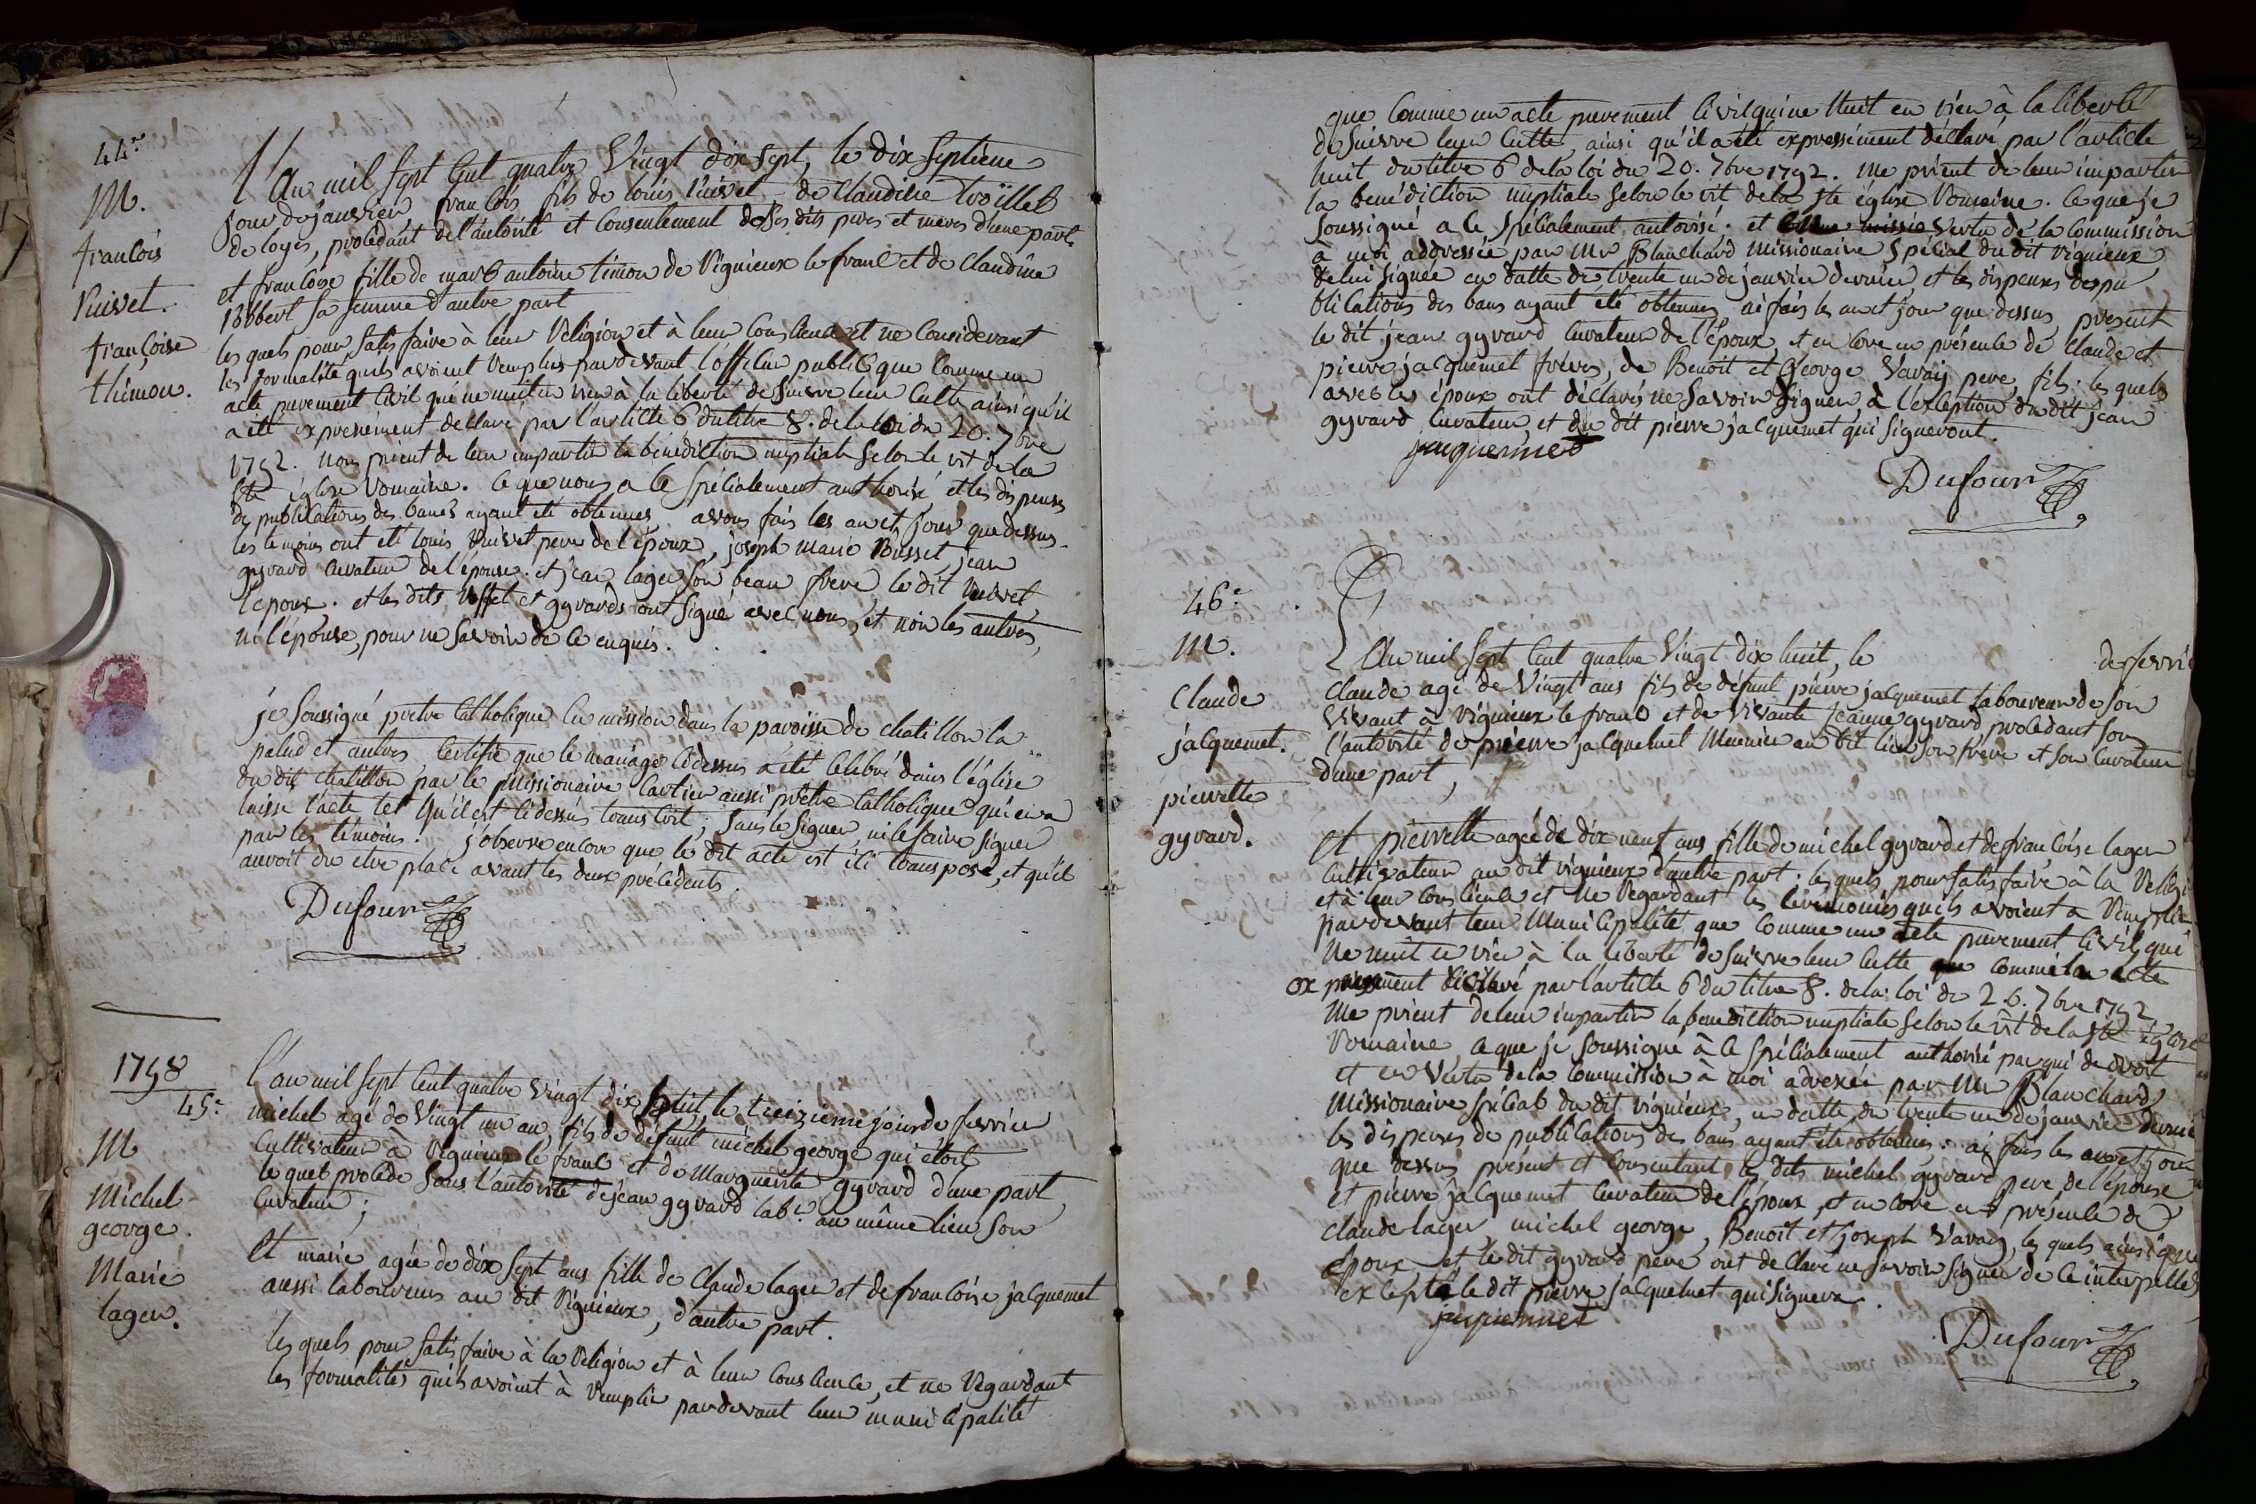 44e
M.
françois
Ruivet.
françoise
thimon.
L'an mil sept cent quatre vingt dix sept, le dix septième
jour de janvier, françois fils de louis Ruivet de claudine
de loyes, procédant de l'autorité et consentement de ses dits pere et mere d'une part
et françoise fille de marc antoine timon de Vignieux le franc et de claudine
Robbert sa femme d'autre part
les quels pour satisfaire à leur Religion et à leur Conscience et ne Considerant
les formalités quils avoient remplies pardevant l'officier public que Comme un
acte purement Civil qui ne nuit en rien à la liberté de suivre leur Culte ainsi qu'il
a été expressement déclaré par l'article 6 du titre 8. de la loi du 20. 7bre
1792. nous prient de leur impartir la bénédiction nuptiale selon le rit de la
Ste église Romaine. Ce que nous a ce spécialement authorisé et les dispenses
de publications des bancs ayant été obtenues avons fais les an et jour que dessus.
les temoins ont été louis Ruivet pere de l'époux, joseph marie Busset, jean
gyvard Curateur de l'épouse. et jean lager son beau frere le dit Ruivet
l'epoux. et les dits et gyvards ont signé avec nous, et non les autres,
ni l'épouse, pour ne savoir de ce enquis.
je soussigné prêtre Catholique en mission dans la paroisse de chatillon la
palud et autres, certifie que le mariage cidessus a été célébré dans l'église
du dit chatillon par le Missionaire Cartier aussi prêtre Catholique qui en a
laissé l'acte tel qu'il est cidessus transcrit; sans le signer, ni le faire signer
par les témoins. j'observe encore que le dit acte est ici transposé, et qu'il
auroit du etre placé avant les deux précédents.
Dufour
1798
45e
M
Michel
george.
Marie
lager.
l'an mil sept cent quatre vingt dix huit, le treizieme jour de fevrier
michel agé de vingt un an, fils de défunt michel george qui étoit
Cultivateur à Vignieux le franc et de Marguerite gyvard d'une part
le quel procède sous l'autorité de jean gyvard labr. au même lieu son
Curateur;
Et marie agée de dix sept ans fille de Claude lager et de françoise jacquemet
aussi laboureurs au dit Vignieux, d'autre part.
les quels pour satisfaire à la Religion et à leur Conscience, et ne Regardant
les formalités qu'ils avoient à remplir pardevant leur municipalité
que Comme un acte purement Civil qui ne Nuit en rien à la liberté
de suivre leur Culte, ainsi qu'il a été expressément déclaré par l'article
huit du titre 6 de la loi du 20. 7bre 1792. me prient de leur impartir
la bénédiction nuptiale selon le rit de la ste église Romaine. Ce que je
soussigné a ce spécialement autorisé. et vertu de la Commission
à moi addressée par Mr Blanchard missionaire spécial du dit Vignieux
de lui signée en datte du trente un de janvier dernier, et les dispenses de pu
blications des bans ayant été obtenues, ai fais les an et jour que dessus, present
le dit jean gyvard Curateur de l'époux, et encore en présence de Claude et
pierre jacquemet freres, de Benoit et George Vavay pere, fils. les quels
avec les époux ont déclarés ne savoir signer, à l'exception du dit jean
gyvard Curateur, et du dit pierre jacquemet qui signeront.
jacquemet
Dufour
46e
M.
Claude
jacquemet.
pierrette
gyvard.
L'an mil sept cent quatre vingt dix huit, le de fevrie
Claude agé de vingt ans fils de défunt pierre jacquemet laboureur de son
vivant à Vignieux le franc et de vivante jeanne gyvard procédant sous
l'autorité de pierre jacquemet Meunier au dit lieu son frere et son Curateur
d'une part,
Et pierrette agée de dix neuf ans fille de michel gyvard et de françoise lager
Cultivateur au dit Vignieux d'autre part. les quels pour satisfaire à la Religi
et à leur Conscience et ne Regardant les cérémonies quils avoient a Remplir
pardevant leur Municipalité que Comme un acte purement Civil, qui
ne nuit en rien à la liberté de suivre leur Culte Comme la acte
ex pressement déclaré par l'article 6 du titre 8. de la loi du 26. 7bre 1792
Me prient de leur impartir la bénédiction nuptiale selon le rit de la ste église
Romaine, Ce que je soussigné à ce spécialement authorisé par qui de droit
et en vertu de la Commission à moi adressée par Mr Blanchard
Missionaire spécial du dit vignieux, en datte du trente un de janvier dernie
les dispenses de publications des bans ayant été obtenues. ai fais les an et jour
que dessus présent et Consentant les dits michel gyvard pere de l'épouse
et pierre jacquemet Curateur de l'époux, et encore en présence de
Claude lager, michel george, Benoit et joseph Vavay, les quels ainsi que
époux et le dit gyvard pere ont déclaré ne savoir signer de ce interpellés
excepté le dit pierre jacquemet qui signera.
jacquemet
Dufour